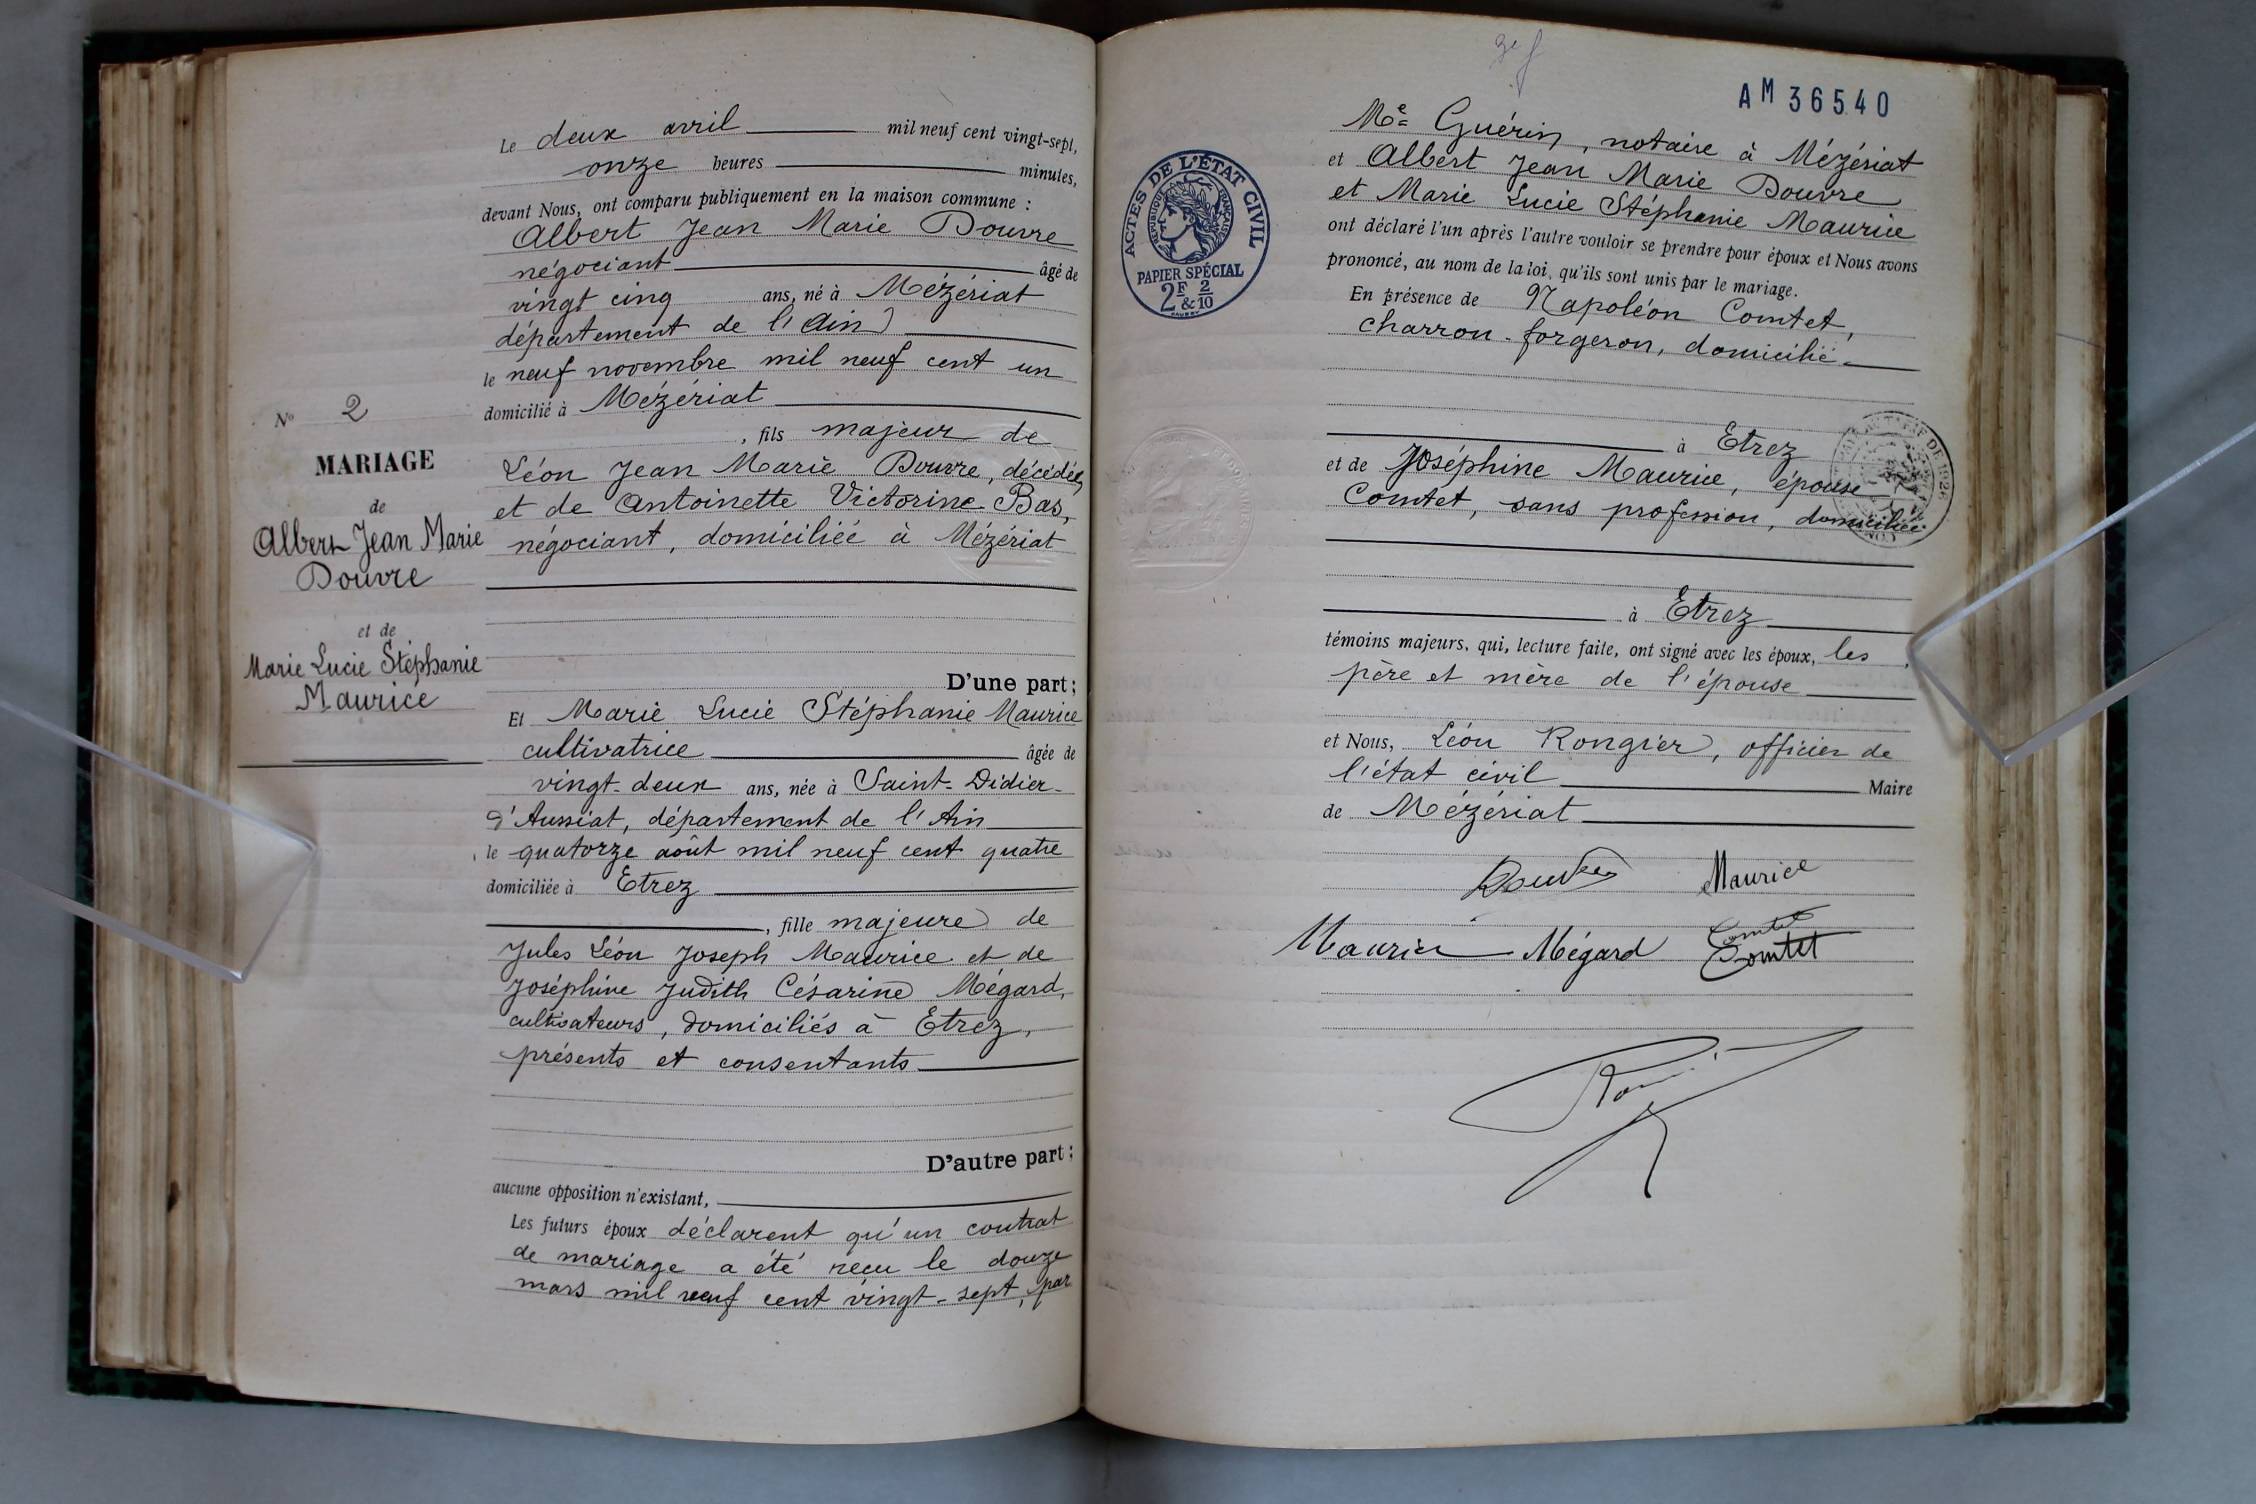 N° 2
MARIAGE
de
Albert Jean Marie
Douvre
et de
Marie Lucie Stéphanie
Maurice
Le deux avril mil neuf cent vingt-sept,
onze heures minutes,
devant Nous, ont comparu publiquement en la maison commune :
Albert Jean Marie Douvre
négociant âgé de
vingt cinq ans, né à Mézériat
département de l'Ain
le neuf novembre mil neuf cent un
domicilié à Mézériat
, fils majeur de
Léon Jean Marie Douvre, décédé,
et de Antoinette Victorine Bas,
négociant, domiciliée à Mézériat
D'une part ;
Et Marie Lucie Stéphanie Maurice
cultivatrice âgée de
vingt-deux ans, née à Saint-Didier-
d'Aussiat, département de l'Ain
le quatorze août mil neuf cent quatre
domiciliée à Etrez
, fille majeure de
Jules Léon Joseph Maurice et de
Joséphine Judith Césarine Mégard,
cultivateurs, domiciliés à Etrez,
présents et consentants
D'autre part ;
aucune opposition n'existant,
Les futurs époux déclarent qu'un contrat
de mariage a été reçu le douze
mars mil neuf cent vingt-sept, par
AM 36540
ACTES DE L'ÉTAT CIVIL
RÉPUBLIQUE FRANÇAISE
PAPIER SPÉCIAL
2F & 2/10
Me Guérin, notaire à Mézériat
et Albert Jean Marie Douvre
et Marie Lucie Stéphanie Maurice
ont déclaré l'un après l'autre vouloir se prendre pour époux et Nous avons
prononcé, au nom de la loi, qu'ils sont unis par le mariage.
En présence de Napoléon Comtet,
charron-forgeron, domicilié
à Etrez
et de Joséphine Maurice, épouse
Comtet, sans profession, domiciliée
à Etrez
témoins majeurs, qui, lecture faite, ont signé avec les époux, les
père et mère de l'épouse
et Nous, Léon Rongier, officier de
l'état civil Maire
de Mézériat
Douvre Maurice
Maurice Mégard Comtet
Comtet